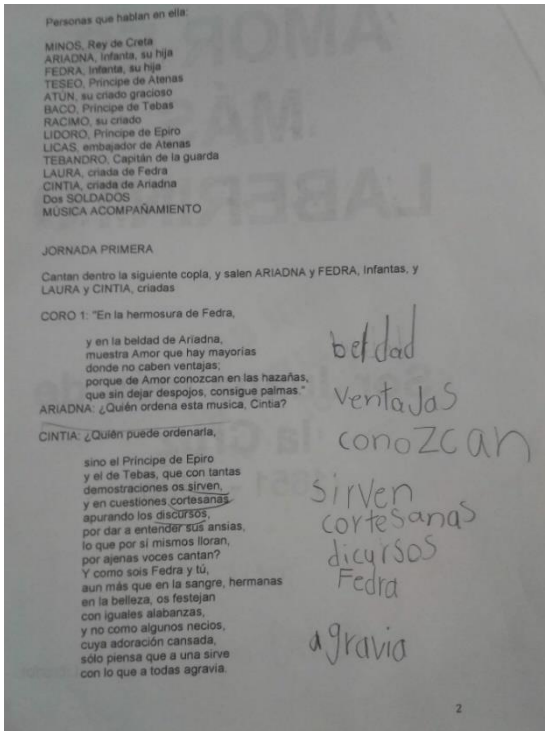 Personas que hablan en ella:
MINOS, Rey de Creta
ARIADNA, Infanta, su hija
FEDRA, Infanta, su hija
TESEO, Príncipe de Atenas
ATÚN, su criado gracioso
BACO, Príncipe de Tebas
RACIMO, su criado
LIDORO, Príncipe de Epiro
LICAS, embajador de Atenas
TEBANDRO, Capitán de la guarda
LAURA, criada de Fedra
CINTIA, criada de Ariadna
Dos SOLDADOS
MÚSICA ACOMPAÑAMIENTO
JORNADA PRIMERA
Cantan dentro la siguiente copla, y salen ARIADNA y FEDRA, Infantas, y
LAURA y CINTIA, criadas
CORO 1: "En la hermosura de Fedra,
y en la beldad de Ariadna,
muestra Amor que hay mayorías
donde no caben ventajas;
porque de Amor conozcan en las hazañas,
que sin dejar despojos, consigue palmas."
ARIADNA: ¿Quién ordena esta musica, Cintia?
CINTIA: ¿Quién puede ordenarla,
sino el Príncipe de Epiro
y el de Tebas, que con tantas
demostraciones os sirven,
y en cuestiones cortesanas
apurando los discursos,
por dar a entender sus ansias,
lo que por sí mismos lloran,
por ajenas voces cantan?
Y como sois Fedra y tú,
aun más que en la sangre, hermanas
en la belleza, os festejan
con iguales alabanzas,
y no como algunos necios,
cuya adoración cansada,
sólo piensa que a una sirve
con lo que a todas agravia.
beldad
ventajas
conozcan
sirven
cortesanas
dicursos
Fedra
agravia
2